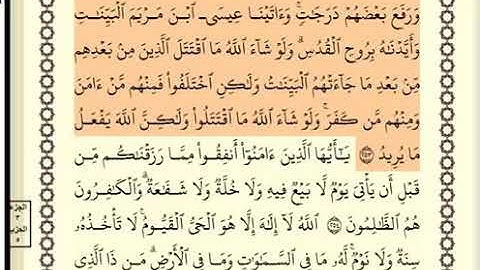 وَرَفَعَ بَعْضَهُمْ دَرَجَٰتٍ ۚ وَءَاتَيْنَا عِيسَى ٱبْنَ مَرْيَمَ ٱلْبَيِّنَٰتِ
وَأَيَّدْنَٰهُ بِرُوحِ ٱلْقُدُسِ ۗ وَلَوْ شَآءَ ٱللَّهُ مَا ٱقْتَتَلَ ٱلَّذِينَ مِنۢ بَعْدِهِم
مِّنۢ بَعْدِ مَا جَآءَتْهُمُ ٱلْبَيِّنَٰتُ وَلَٰكِنِ ٱخْتَلَفُوا۟ فَمِنْهُم مَّنْ ءَامَنَ
وَمِنْهُم مَّن كَفَرَ ۚ وَلَوْ شَآءَ ٱللَّهُ مَا ٱقْتَتَلُوا۟ وَلَٰكِنَّ ٱللَّهَ يَفْعَلُ
مَا يُرِيدُ ٢٥٣ يَٰٓأَيُّهَا ٱلَّذِينَ ءَامَنُوٓا۟ أَنفِقُوا۟ مِمَّا رَزَقْنَٰكُم مِّن
قَبْلِ أَن يَأْتِىَ يَوْمٌ لَّا بَيْعٌ فِيهِ وَلَا خُلَّةٌ وَلَا شَفَٰعَةٌ ۗ وَٱلْكَٰفِرُونَ
هُمُ ٱلظَّٰلِمُونَ ٢٥٤ ٱللَّهُ لَآ إِلَٰهَ إِلَّا هُوَ ٱلْحَىُّ ٱلْقَيُّومُ ۚ لَا تَأْخُذُهُۥ
سِنَةٌ وَلَا نَوْمٌ ۚ لَّهُۥ مَا فِى ٱلسَّمَٰوَٰتِ وَمَا فِى ٱلْأَرْضِ ۗ مَن ذَا ٱلَّذِى
الجزء
٣
الحزب
٥